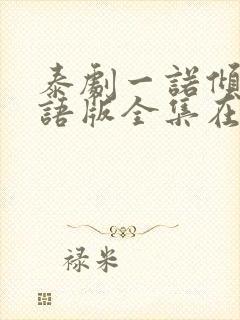 泰劇一諾傾
語版全集在
禄米